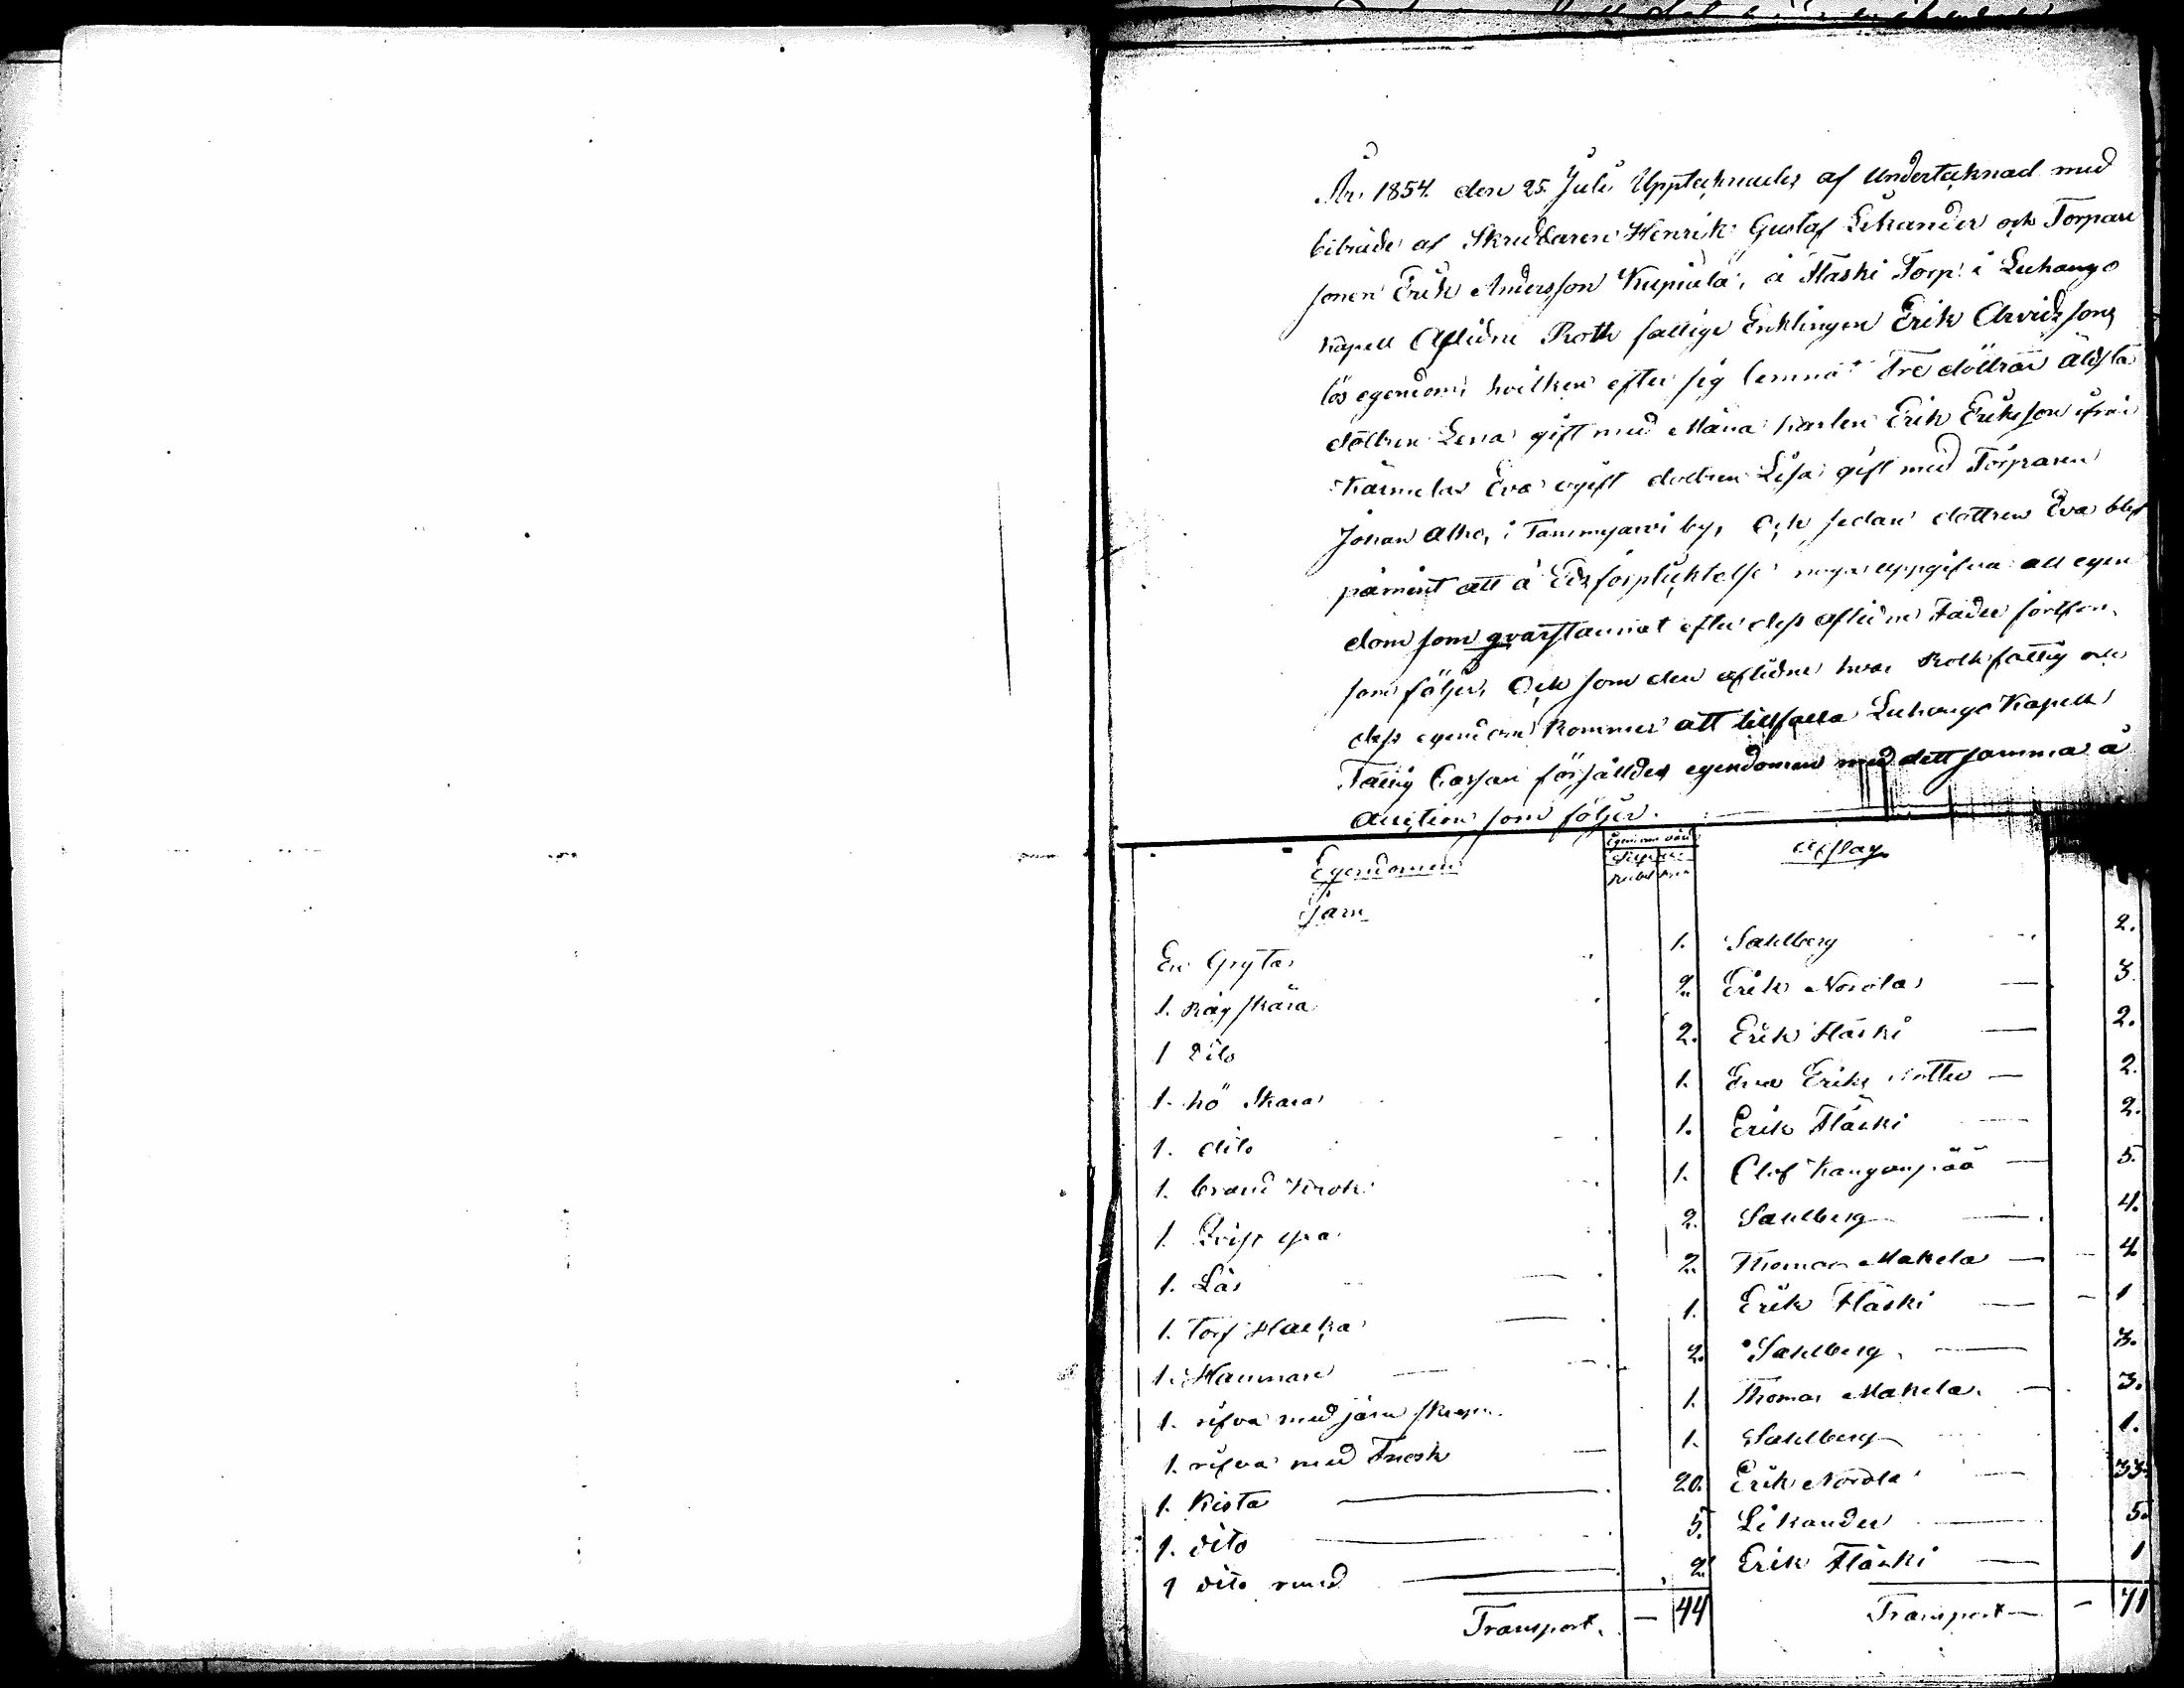 År 1854. den 25. Juli Upptecknades af Undertecknad med
biträde af Skreddaren Henrik Gustaf Likander och Torpare
sonen Erik Andersson Kupiala, å Fläski Torp i Luhango
Kapell Aflidne Roth fattige Enklingen Erik Arvidssons
lös egendom, hvilken efter sig lemnat Tre döttrar äldsta
dottren Lena gift med Måga karlen Erik Eriksson ifrån
Eva ogift dottren Lisa gift med Torparen
Johan Alho, i Tammijarvi by, Och sedan dottren Eva blef
påmint att å Edsförpliktelse noga uppgifva all egen
dom som qvarstannat efter dess aflidne Fader
som följer, Och som den aflidne var Rothfattig och
dess egendom kommer att tillfalla Luhango Kapells
Fattig Cassan försålldes egendomen med dett samma å
Auction som följer.
Egendomen Egendom värd Afslag
Silfver
Rubel
Jarn
En Gryta 1. Sahlberg 2.
1. Råg skära 2. Erik Norola 3
1 dito 2. Erik Fläski 2.
1. hö Skara 1. Eva Eriks dotter 2.
1. dito 1. Erik Fläski 2.
1. brand krok 1. Olof Kangonpää 5.
1. 2. Sahlberg 4.
1. Lås 2. Thomas Makela 4
1. Torf Hacka 1. Erik Fläski 1
1. Hammare 2. Sahlberg 3.
1. rifva med järn 1. Thomas Makela 3.
1. rifva med 1. Sahlberg 1.
1. Kista 20. Erik Norola 33.
1. dito 5. Likander 5.
1 dito rund 2. Erik Fläski 1
Transport. — 44 Transport — 71